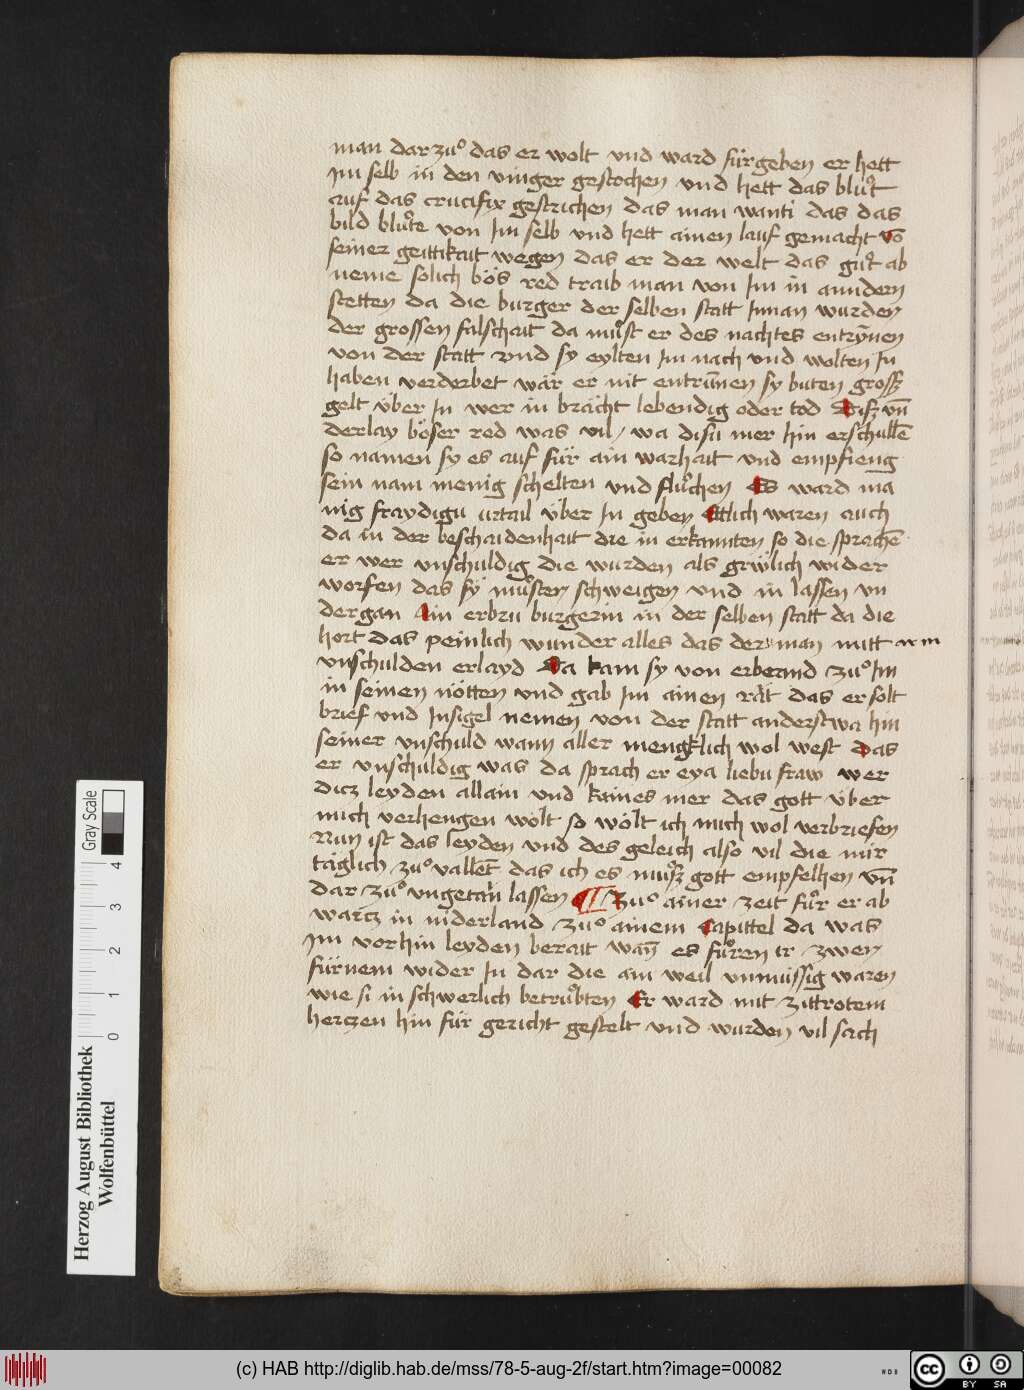 man dar zuͦ das er wolt vnd ward fürgeben er hett
Im selb in den vinger gestochen vnd hett das bluͦt
auf das crucifix gestrichen das man wanti das das
bild bluͦte von Im selb vnd hett ainen lauf gemacht võ
seiner geittikait wegen das er der welt das guͦt ab
neme solich bös red traib man von Im in anndern
stetten da die burger der selben statt Innan wurden
der grossen falschait da muͦst er des nachtes entrynnen
von der statt vnd sy eylten Im nach vnd wolten In
haben verderbet wär er nit entrunnen sy buten grosß
gelt über In wer in brächt lebendig oder tod Disz vñ
derlay böser red was vil / wa disu mer hin erschullẽ
so namen sy es auf für ain warhait vnd empfieng
sein nam menig schelten vnd fluͦchen Es ward ma
nig fraydigu urtail über In geben Ettlich waren auch
da in der beschaidenhait die in erkannten so die sprachẽ
er wer vnschuldig die wurden als grẅlich wider
worfen das sy muͦsten schweigen vnd in lassen vn
dergan Ain erbru burgerin in der selben statt da die
hort das peinlich wunder alles das der man mitt arm
vnschulden erlayd Da kam sy von erbermd zuͦ Im
in seinen nötten vnd gab Im ainen rät das er solt
brief vnd Insigel nemen von der statt anderstwa hin
seiner vnschuld wann aller mengklich wol west das
er vnschuldig was da sprach er eya liebu fraw wer
dicz leyden allain vnd kaines mer das gott über
mich verhengen wölt so wölt ich mich wol verbriefen
Nun ist das leyden vnd des geleich also vil die mir
täglich zuͦ vallet das ich es muͦsz gott empfelhen vñ
dar zuͦ vngetän lassen ¶ Zuͦ ainer zeit fuͦr er ab
wartz in niderland zuͦ ainem Capittel da was
Im vorhin leyden berait wañ es fuͦren ir zwen
fürnem wider In dar die ain weil vnmüssig waren
wie si in schwerlich betruͦbten Er ward mit zittrotem
herczen hin für gericht gestelt vnd wurden vil sach
Herzog August Bibliothek
Wolfenbüttel
Gray Scale
0 1 2 3 4
(c) HAB http://diglib.hab.de/mss/78-5-aug-2f/start.htm?image=00082
WDB
cc BY SA